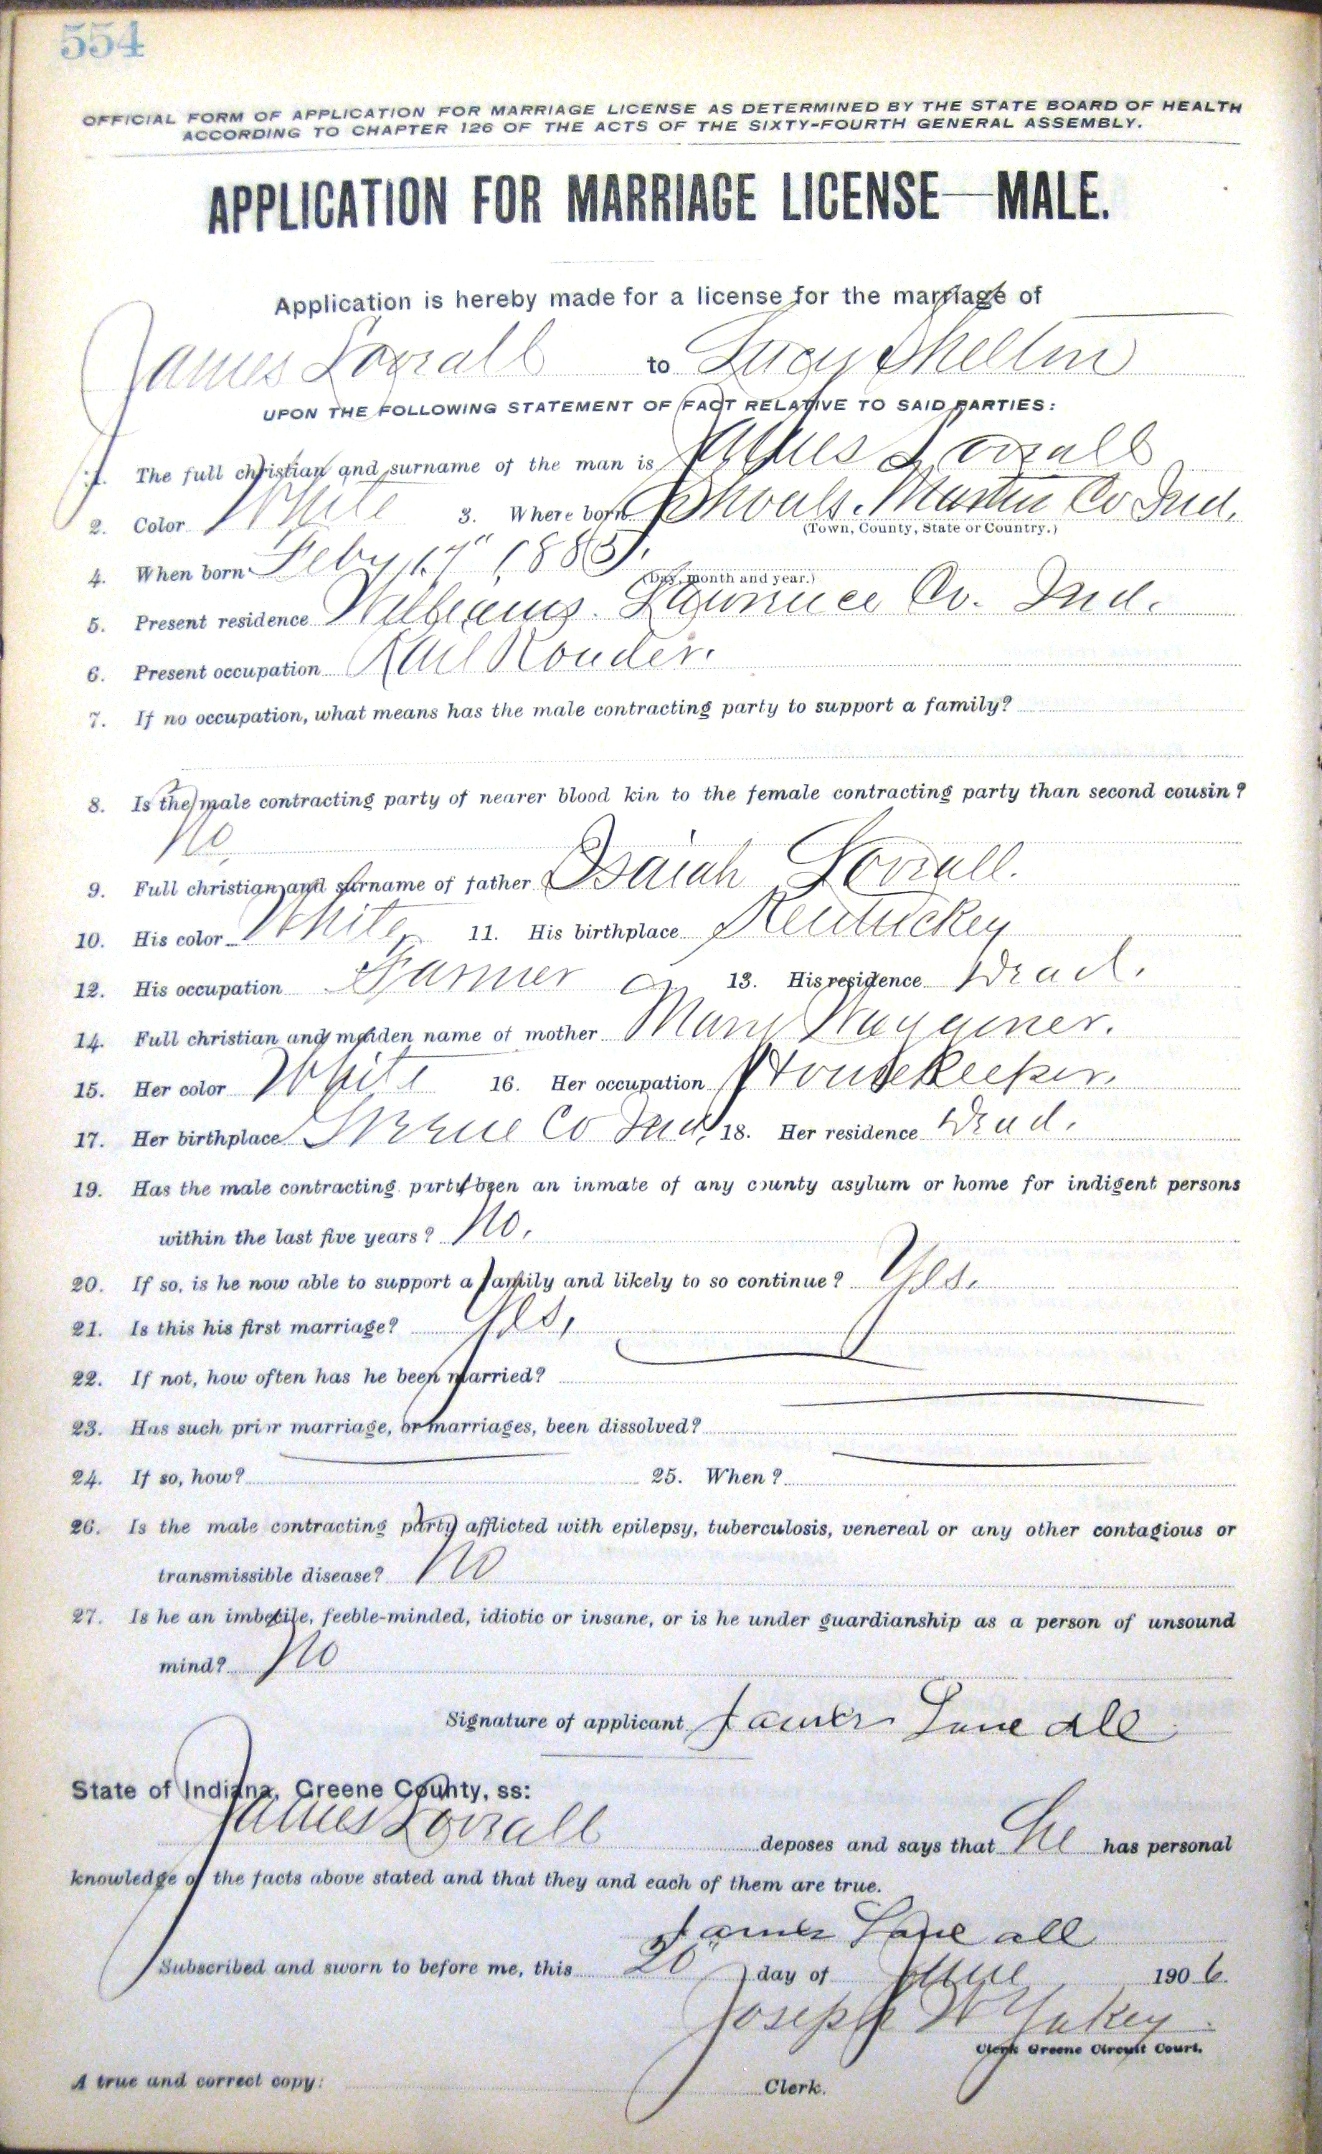 554
OFFICIAL FORM OF APPLICATION FOR MARRIAGE LICENSE AS DETERMINED BY THE STATE BOARD OF HEALTH
ACCORDING TO CHAPTER 126 OF THE ACTS OF THE SIXTY-FOURTH GENERAL ASSEMBLY.
APPLICATION FOR MARRIAGE LICENSE—MALE.
Application is hereby made for a license for the marriage of
James to Lucy Shelton
UPON THE FOLLOWING STATEMENT OF FACT RELATIVE TO SAID PARTIES:
1. The full christian and surname of the man is James
2. Color White 3. Where born Shoals. Martin Co Ind.
(Town, County, State or Country.)
4. When born Feby 17" 1885.
(Day, month and year.)
5. Present residence Williams. Lawrence Co. Ind.
6. Present occupation Rail Roader.
7. If no occupation, what means has the male contracting party to support a family?
8. Is the male contracting party of nearer blood kin to the female contracting party than second cousin?
No.
9. Full christian and surname of father Isaiah
10. His color White 11. His birthplace Kentuckey
12. His occupation Farmer 13. His residence Dead.
14. Full christian and maiden name of mother Mary Waggoner.
15. Her color White 16. Her occupation Housekeeper.
17. Her birthplace Greene Co Ind. 18. Her residence Dead.
19. Has the male contracting party been an inmate of any county asylum or home for indigent persons
within the last five years? No.
20. If so, is he now able to support a family and likely to so continue? Yes.
21. Is this his first marriage? Yes,
22. If not, how often has he been married?
23. Has such prior marriage, or marriages, been dissolved?
24. If so, how? 25. When?
26. Is the male contracting party afflicted with epilepsy, tuberculosis, venereal or any other contagious or
transmissible disease? No
27. Is he an imbecile, feeble-minded, idiotic or insane, or is he under guardianship as a person of unsound
mind? No
Signature of applicant James
State of Indiana, Greene County, ss:
James deposes and says that he has personal
knowledge of the facts above stated and that they and each of them are true.
James
Subscribed and sworn to before me, this 20" day of June 1906.
Joseph W Yakey
Clerk Greene Circuit Court.
A true and correct copy: Clerk.